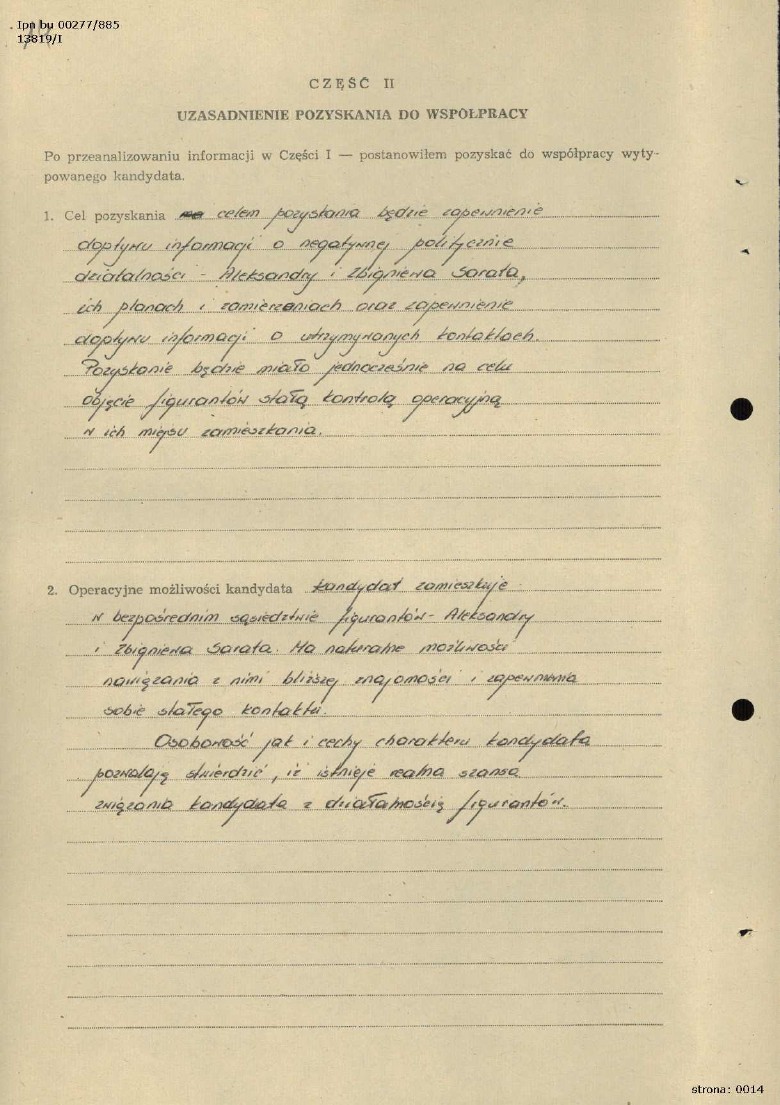 Ipn bu 00277/885
13819/I
CZĘŚĆ II
UZASADNIENIE POZYSKANIA DO WSPÓŁPRACY
Po przeanalizowaniu informacji w Części I — postanowiłem pozyskać do współpracy wyty-
powanego kandydata.
1. Cel pozyskania celem pozyskania będzie zapewnienie
dopływu informacji o negatywnej politycznie
działalności - Aleksandry i Zbigniewa Sarata,
ich planach i zamierzeniach oraz zapewnienie
dopływu informacji o utrzymywanych kontaktach.
Pozyskanie będzie miało jednocześnie na celu
objęcie figurantów stałą kontrolą operacyjną
w ich miejscu zamieszkania.
2. Operacyjne możliwości kandydata kandydat zamieszkuje
w bezpośrednim sąsiedztwie figurantów - Aleksandry
i Zbigniewa Sarata. Ma naturalne możliwości
nawiązania z nimi bliższej znajomości i zapewnienia
sobie stałego kontaktu.
Osobowość jak i cechy charakteru kandydata
pozwalają stwierdzić, iż istnieje realna szansa
związania kandydata z działalnością figurantów.
strona: 0014